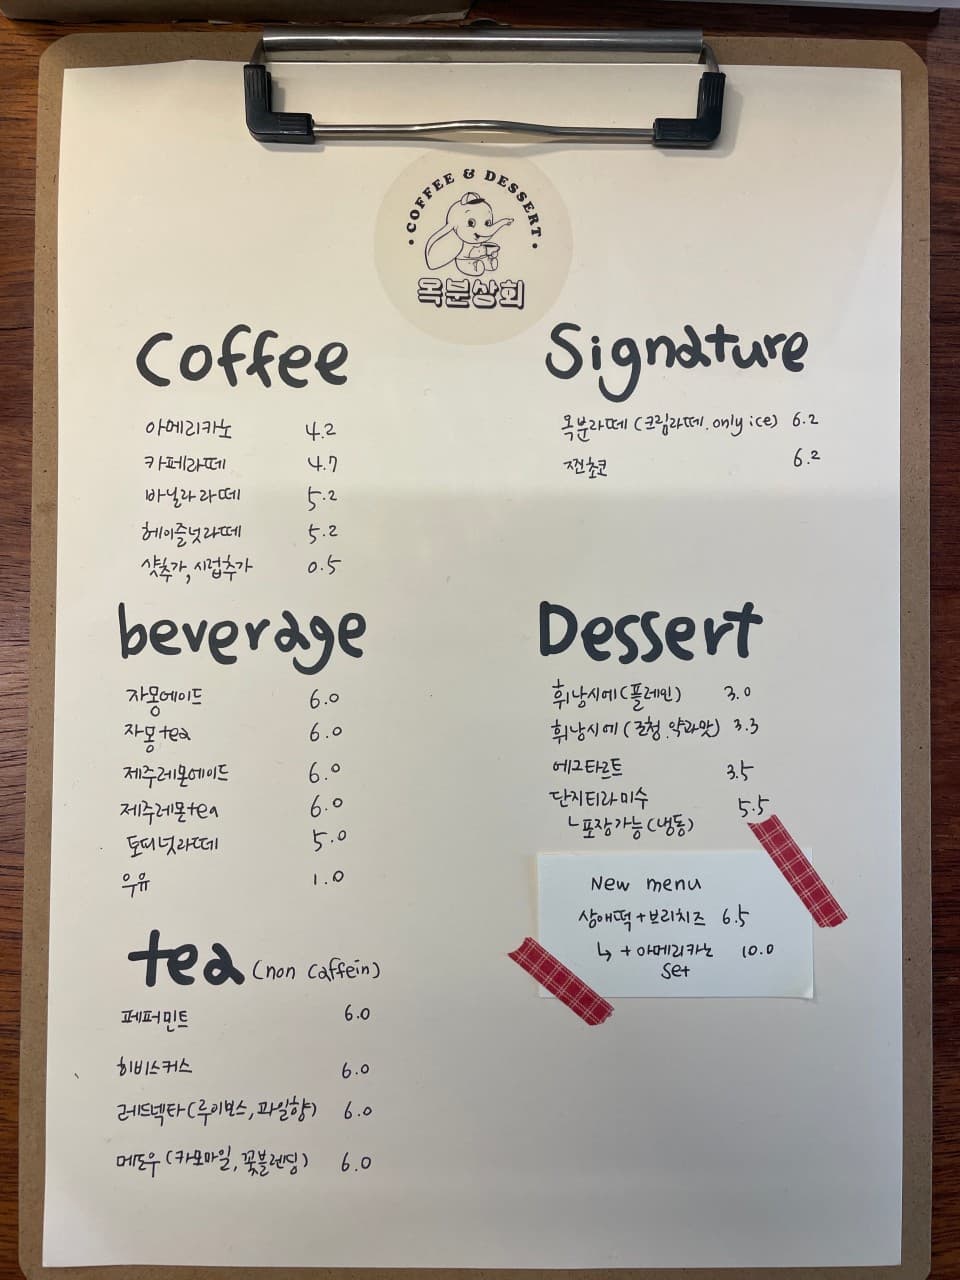 COFFEE & DESSERT
옥분상회
Coffee
아메리카노 4.2
카페라떼 4.7
바닐라라떼 5.2
헤이즐넛라떼 5.2
샷추가, 시럽추가 0.5
Signature
옥분라떼 (크림라떼. only ice) 6.2
찐초코 6.2
beverage
자몽에이드 6.0
자몽 tea 6.0
제주레몬에이드 6.0
제주레몬 tea 6.0
토피넛라떼 5.0
우유 1.0
Dessert
휘낭시에 (플레인) 3.0
휘낭시에 (조청.약과맛) 3.3
에그타르트 3.5
단지티라미수 5.5
ㄴ포장가능 (냉동)
New menu
상애떡 + 브리치즈 6.5
↳ + 아메리카노 10.0
set
tea (non caffein)
페퍼민트 6.0
히비스커스 6.0
레드넥타 (루이보스, 과일향) 6.0
메도우 (카모마일, 꽃블렌딩) 6.0